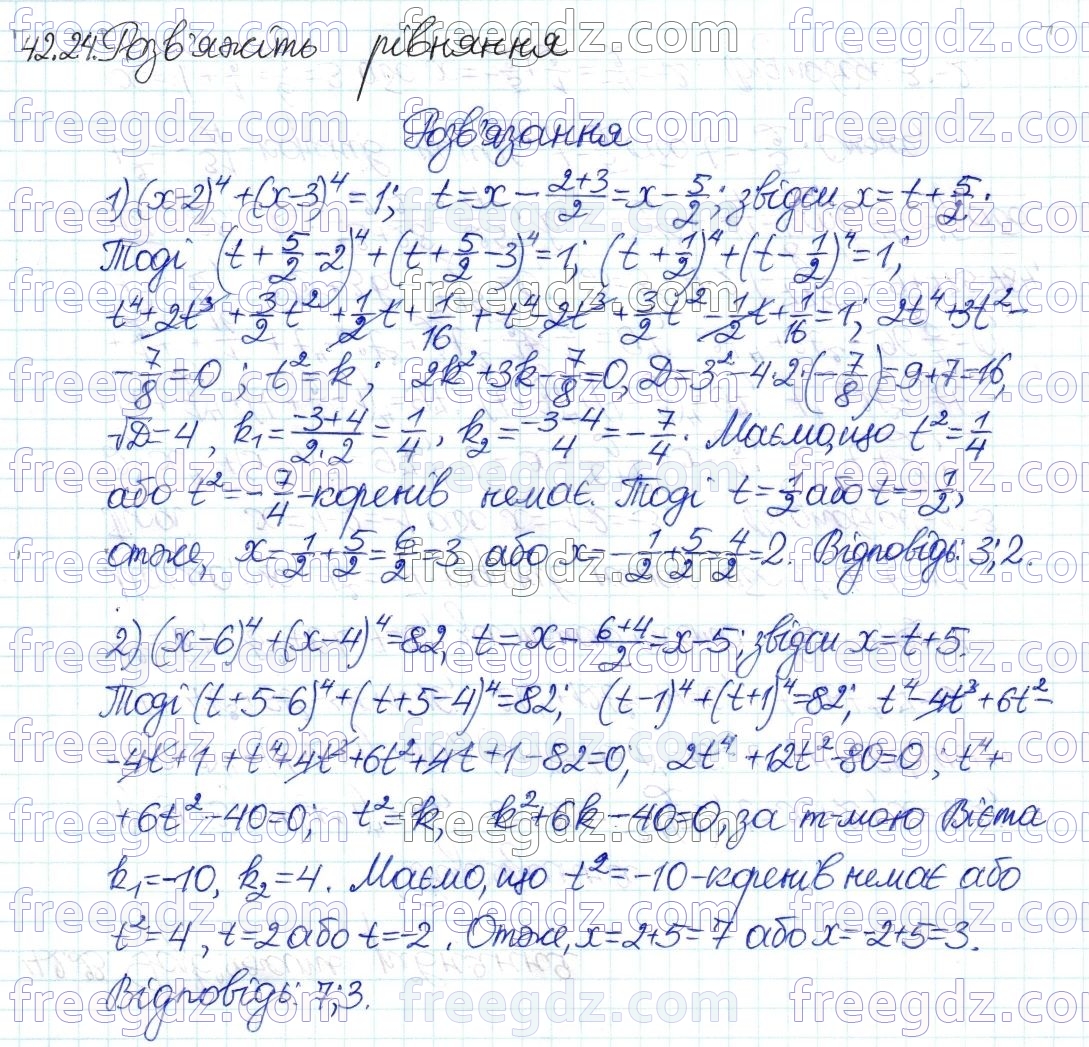 42.24. Розв'яжіть рівняння
Розв'язання
1) (x-2)⁴+(x-3)⁴=1; t=x-(2+3)/2=x-5/2; звідси x=t+5/2.
Тоді (t+5/2-2)⁴+(t+5/2-3)⁴=1; (t+1/2)⁴+(t-1/2)⁴=1;
t⁴+2t³+3/2t²+1/2t+1/16+t⁴-2t³+3/2t²-1/2t+1/16=1; 2t⁴+3t²-
-7/8=0; t²=k; 2k²+3k-7/8=0, D=3²-4·2·(-7/8)=9+7=16,
√D=4, k₁=(-3+4)/(2·2)=1/4, k₂=(-3-4)/4=-7/4. Маємо, що t²=1/4
або t²=-7/4-коренів немає. Тоді t=1/2 або t=-1/2,
отже, x=1/2+5/2=6/2=3 або x=-1/2+5/2=4/2=2. Відповідь: 3; 2.
2) (x-6)⁴+(x-4)⁴=82, t=x-(6+4)/2=x-5; звідси x=t+5.
Тоді (t+5-6)⁴+(t+5-4)⁴=82; (t-1)⁴+(t+1)⁴=82; t⁴-4t³+6t²-
-4t+1+t⁴+4t³+6t²+4t+1-82=0; 2t⁴+12t²-80=0; t⁴+
+6t²-40=0; t²=k, k²+6k-40=0, за т-мою Вієта
k₁=-10, k₂=4. Маємо, що t²=-10-коренів немає або
t²=4, t=2 або t=-2. Отже, x=2+5=7 або x=-2+5=3.
Відповідь: 7; 3.